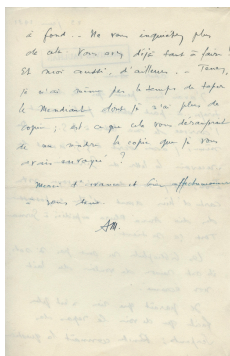 à fond. - Ne vous inquiétez plus
de cela. Vous avez déjà tant à faire !
Et moi aussi, d'ailleurs. - Tenez,
je n'ai même pas le temps de taper
le Mendiant dont je n'ai plus de
copie ; est-ce que cela vous dérangerait
de me rendre la copie que je vous
avais envoyée ?
Merci d'avance et bien affectueusement
AM.